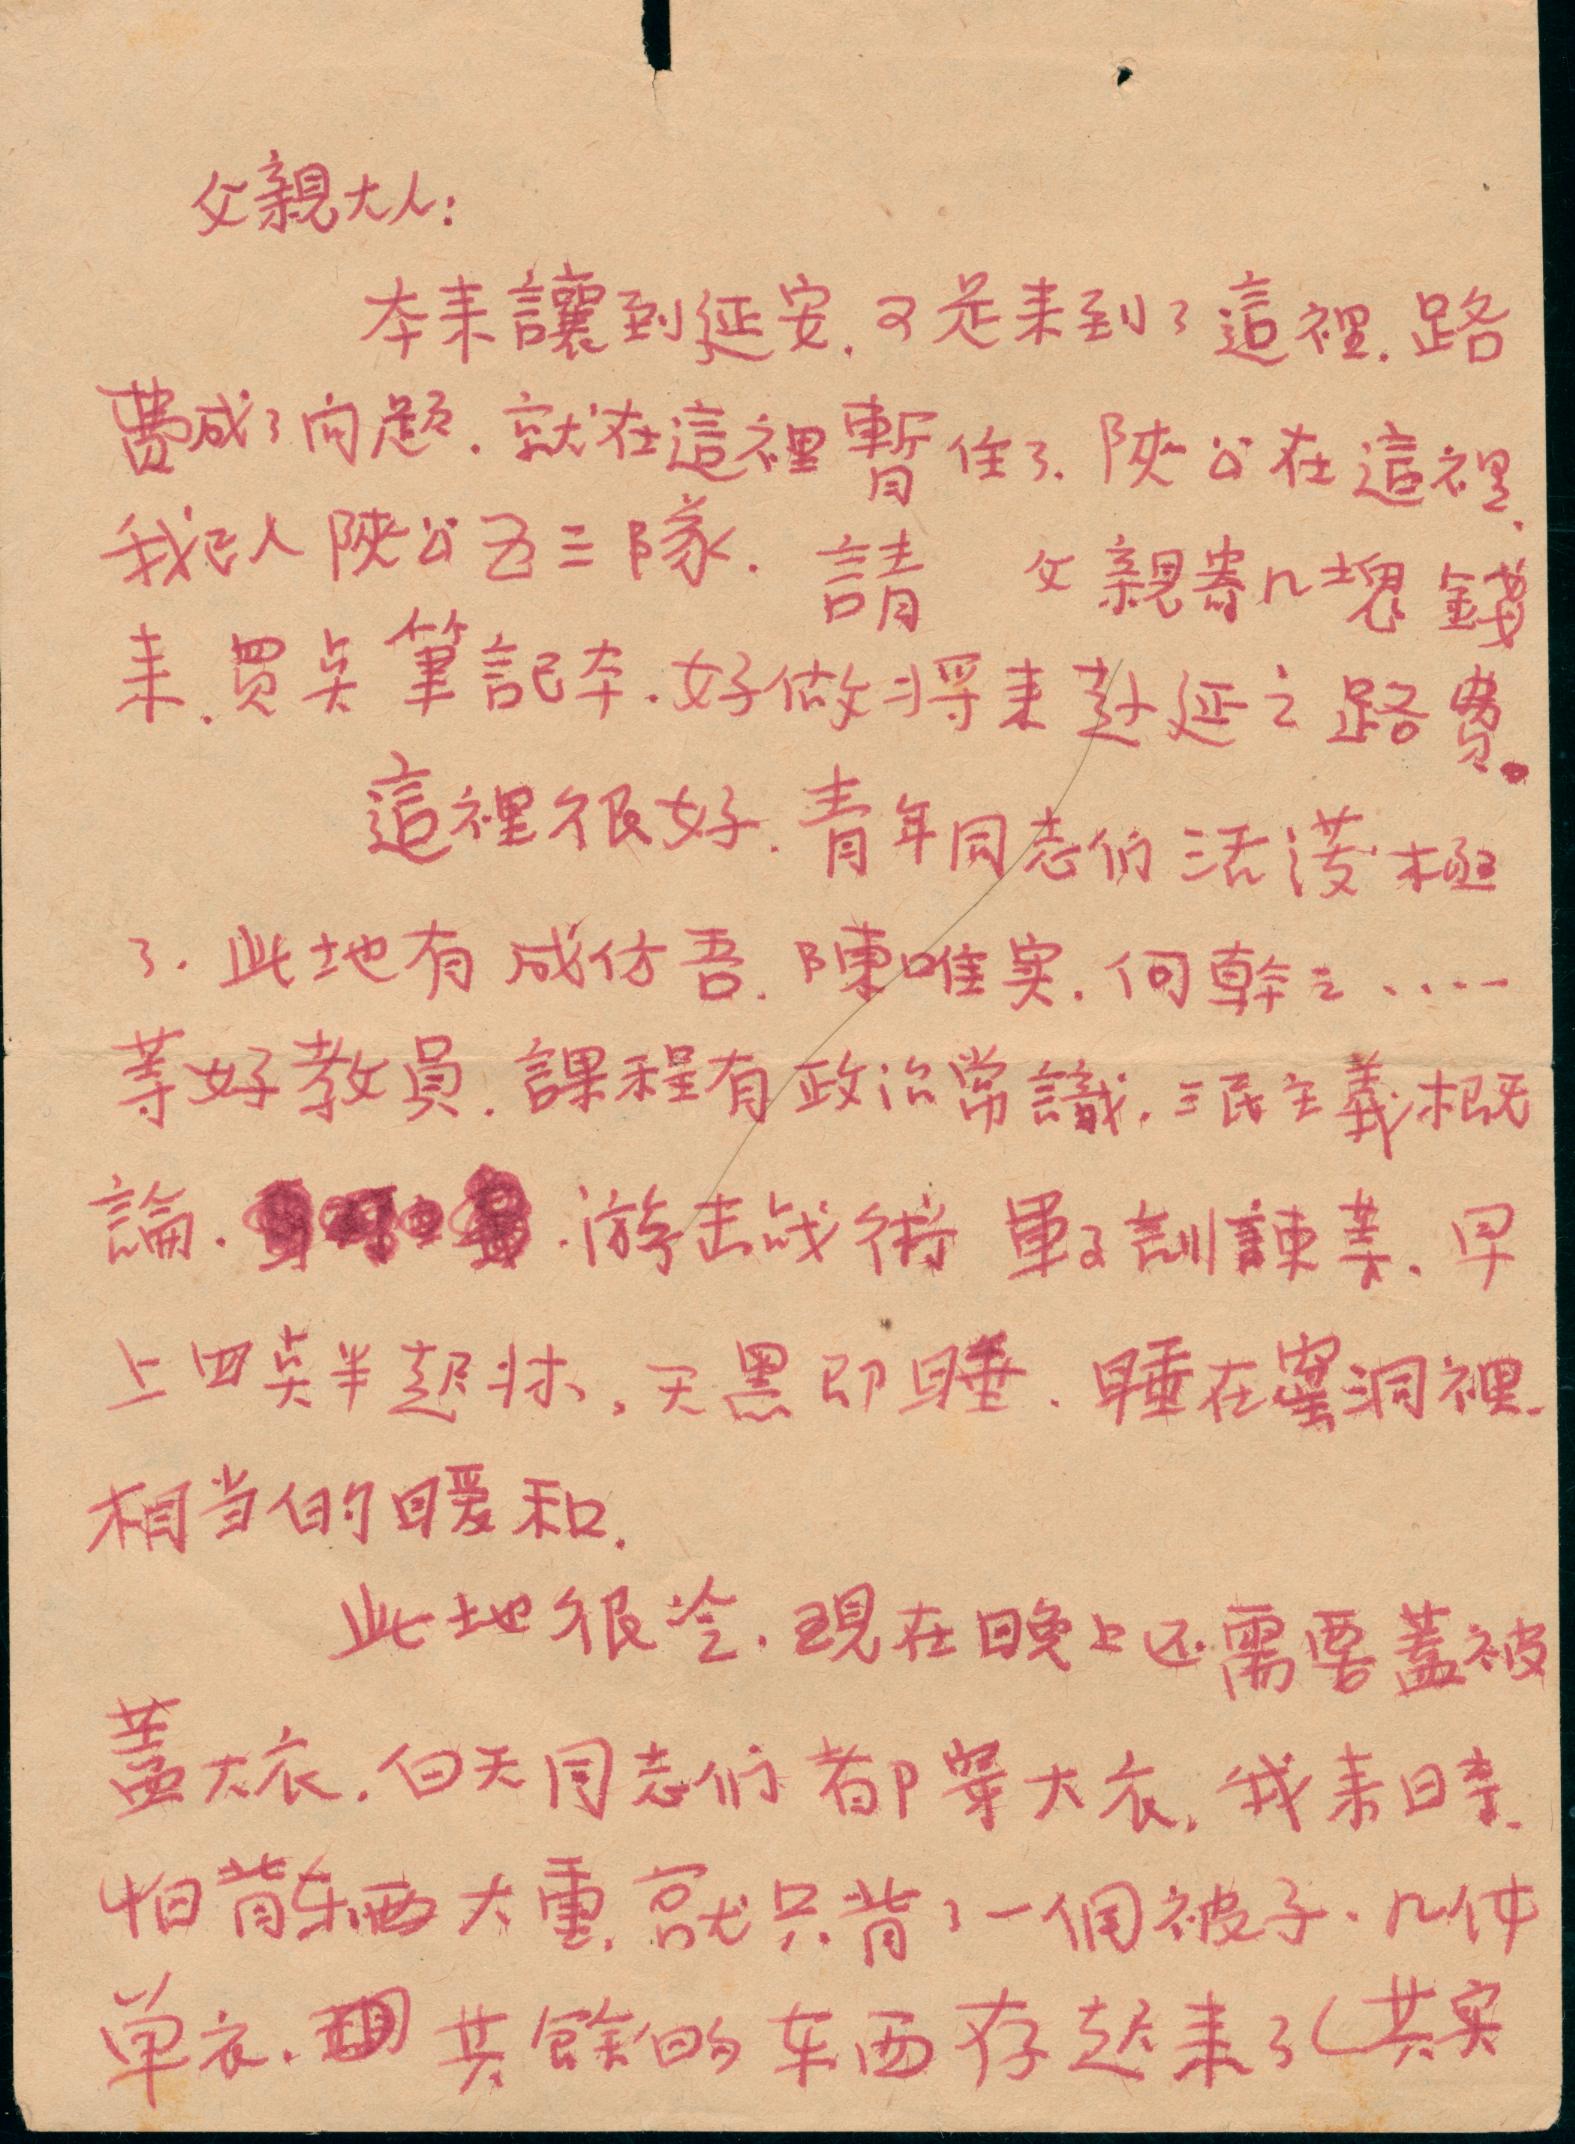 父親大人：
本来讓到延安．又是来到了這裡．路
費成了问題．就在這裡暫住了．陝公在這裡．
我已入陝公五三隊．請　父親寄几塊錢
来．買点筆記本．好做将来赴延之路費。
這裡很好．青年同志们活潑極
了．此地有成仿吾．陳唯实．何幹之．．．．
等好教員．課程有政治常識．三民主義概
論．．游击战術 軍事訓諫等．早
上四点半起床．天黑即睡．睡在窑洞裡．
相当的暖和．
此地很冷．現在晚上还需要蓋被
蓋大衣．白天同志们都穿大衣．我来時．
怕背东西太重．就只背了一個被子．几件
单衣．其餘的东西存起来了（其实